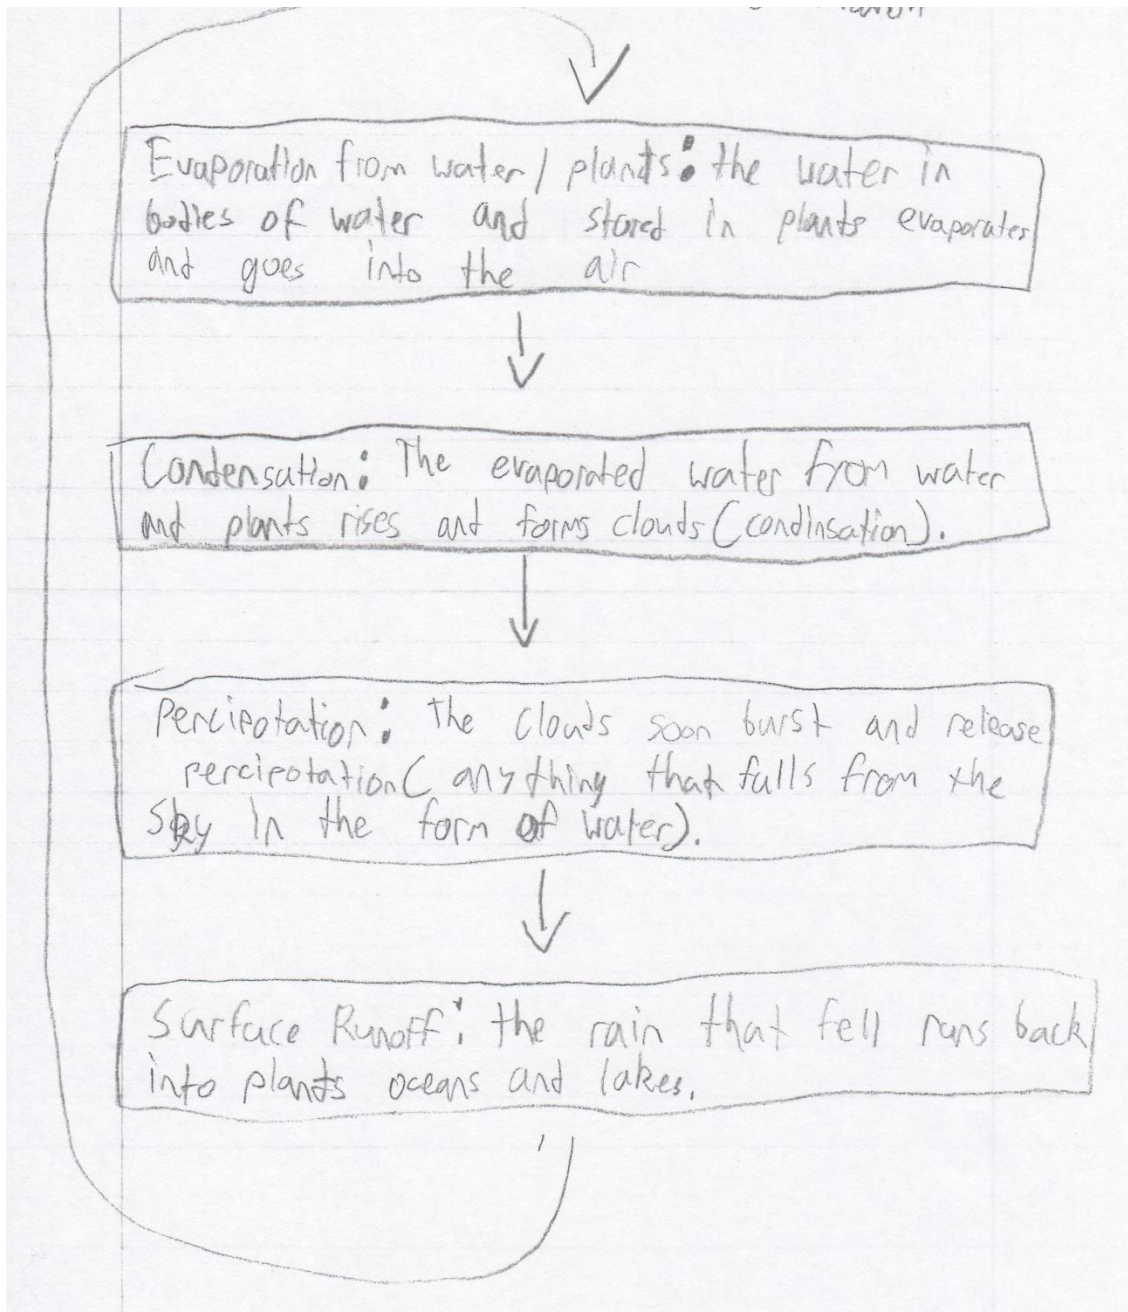 Evaporation from water/plants: the water in
bodies of water and stored in plants evaporates
and goes into the air
Condensation: The evaporated water from water
and plants rises and forms clouds (condinsation).
Percipotation: The clouds soon burst and release
percipotation( anything that falls from the
sky in the form of water).
Surface Runoff: the rain that fell runs back
into plants oceans and lakes.